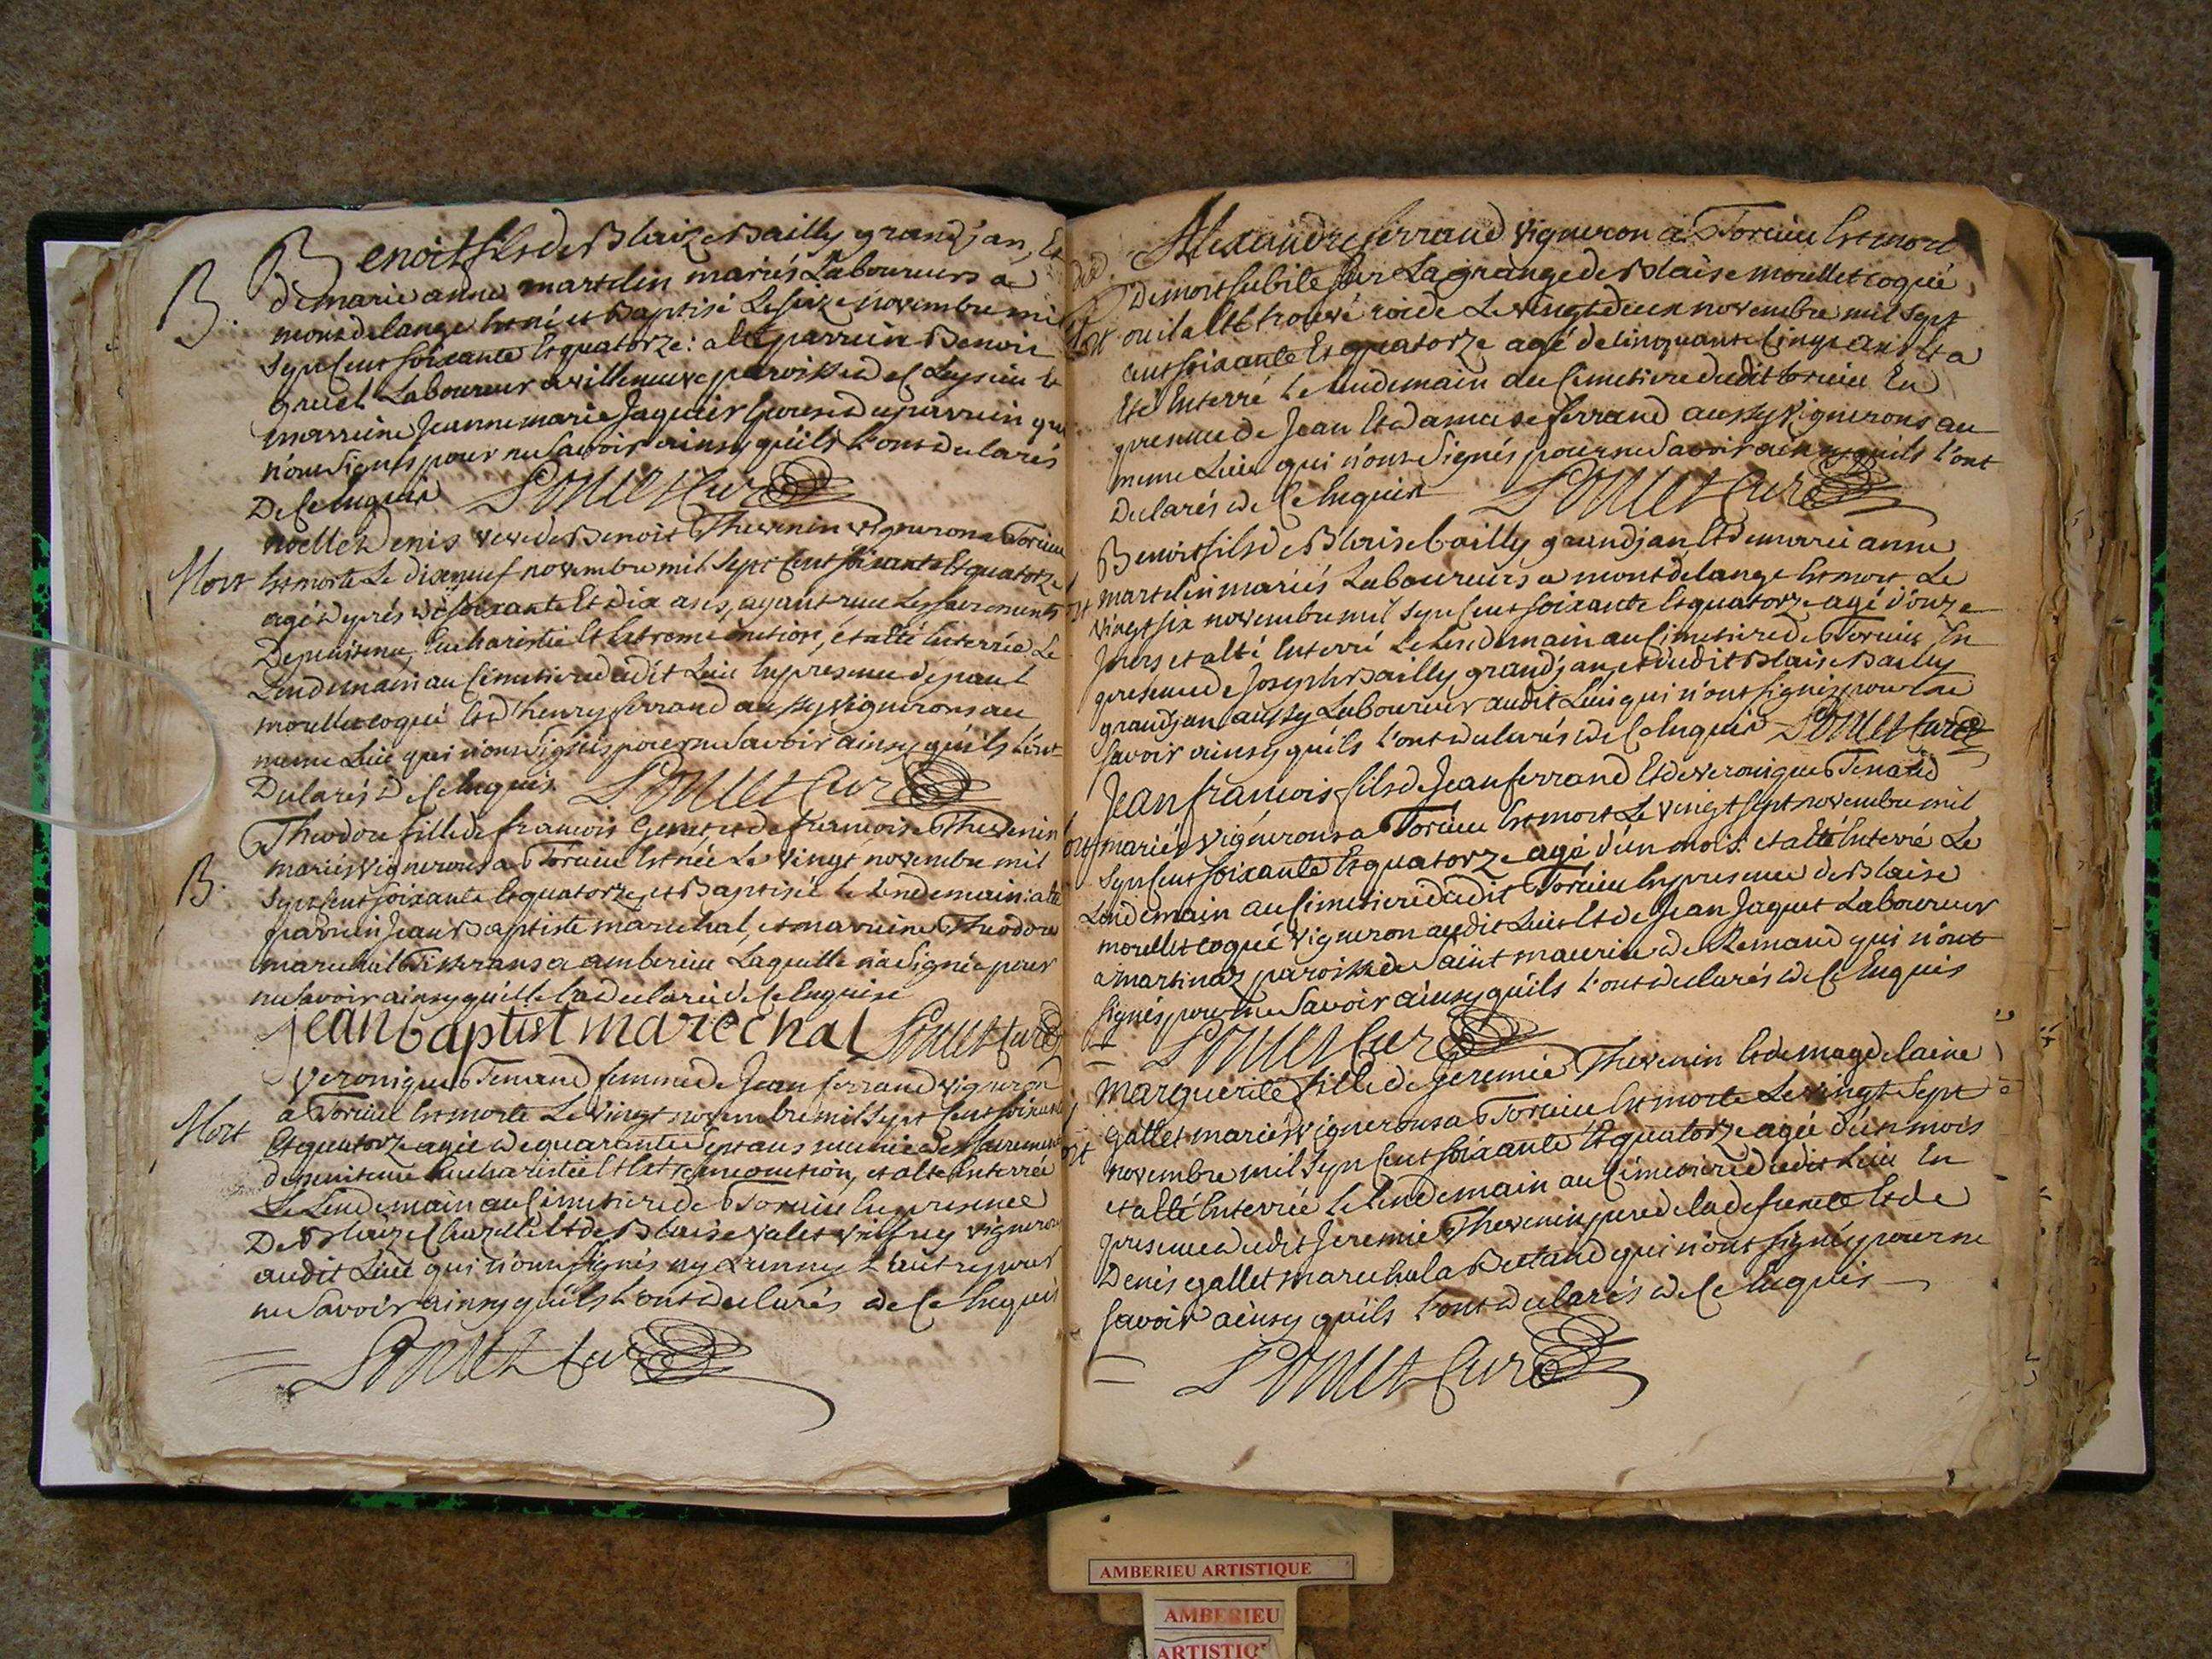 B.
Benoit fils de Blaize Bailly grandjan, Et
de marie anne martelin mariés Laboureurs a
montdelange Est né et Baptisé Le seize novembre mil
sept Cent soixante Et quatorze: a Eté parrein Benoit
gruel Laboureur a villeneuve paroisse de
marreine Jeanne marie Jaquier Epouse du parrein qui
n'ont signés pour ne savoir ainsy qu'ils L'ont declarés
De Ce Enquis Curé
Mort
noelle Denis veve de Benoit Thevenin vigneron a Torcieu
Est morte Le dixneuf novembre mil sept Cent soixante Et quatorze
agée d'eprés de soixante Et dix ans, ayant reçue Les sacrements
De penitence, Eucharistie Et Extreme onction, et a Eté Enterrée Le
Lendemain au Cimetiere dudit Lieu En presence de paul
morellet coqué Et d'henry ferrand aussy vignerons au
meme Lieu qui n'ont signés pour ne savoir ainsy qu'ils L'ont
Declarés De Ce Enquis Curé
B.
Theodore fille de francois Genet et de francoise Thevenin
mariés vignerons a Torcieu Est née Le vingt novembre mil
sept Cent soixante Et quatorze, et Baptisée Le Lendemain: a Eté
parrein Jean Baptiste marechal, et marreine Theodore
marechal a amberieu Laquelle n'a signée pour
ne savoir ainsy qu'elle L'a declarée de Ce Enquise
jean baptist marechal Curé
Mort
veronique Tenand femme de Jean ferrand vigneron
a Torcieu Est morte Le vingt novembre mil sept Cent soixante
Et quatorze agée de quarante sept ans munie des sacrements
de penitence Eucharistie Et Extreme onction, et a Eté Enterrée
Le Lendemain au Cimetiere de Torcieu En presence
De Blaize Et de Blaise valet vignerons
audit Lieu qui n'ont signés ny L'un ny L'autre pour
ne savoir ainsy qu'ils L'ont declarés de Ce Enquis
Curé
Alexandre ferrand vigneron a Torcieu Est mort
De mort subite sur La grange de Blaise morellet coqué
ou il a Eté trouvé roide Le vingt deux novembre mil sept
cent soixante Et quatorze agé de Cinquante Cinq ans Et a
Eté Enterré Le Lendemain au Cimetiere dudit torcieu En
presence de Jean Et damase ferrand aussy vignerons au
meme Lieu qui n'ont signés pour ne savoir ainsy qu'ils L'ont
Declarés de Ce Enquis Curé
ort
Benoit fils de Blaise bailly grandjan, Et de marie anne
martelin mariés Laboureurs a montdelange Est mort Le
vingt six novembre mil sept Cent soixante Et quatorze agé d'onze
Jours et a Eté Enterré Le Lendemain au Cimetiere de Torcieu En
presence de Joseph Bailly grandjan, et dudit Blaise Bailly
grandjan aussy Laboureur audit Lieu qui n'ont signés pour ne
savoir ainsy qu'ils L'ont declarés de Ce Enquis Curé
ort
Jean francois fils de Jean ferrand Et de veronique Tenand
mariés vignerons a Torcieu Est mort Le vingt sept novembre mil
sept Cent soixante Et quatorze agé d'un mois et a Eté Enterré Le
Lendemain au Cimetiere dudit Torcieu En presence de Blaise
morellet coqué vigneron audit Lieu Et de Jean Jaquet Laboureur
a martinaz paroisse de saint maurice de Remand qui n'ont
signés pour ne savoir ainsy qu'ils L'ont declarés de Ce Enquis
Curé
ort
Marguerite fille de Jeremie Thevenin Et de magdelaine
gallet mariés vignerons a Torcieu Est morte Le vingt sept
novembre mil sept Cent soixante Et quatorze agée d'un mois
et a Eté Enterrée Le Lendemain au Cimetiere dudit Lieu En
presence dudit Jeremie Thevenin pere de la defunte Et de
Denis gallet marechal a qui n'ont signés pour ne
savoir ainsy qu'ils L'ont declarés de Ce Enquis
Curé
AMBERIEU ARTISTIQUE
AMBERIEU
ARTISTIQ